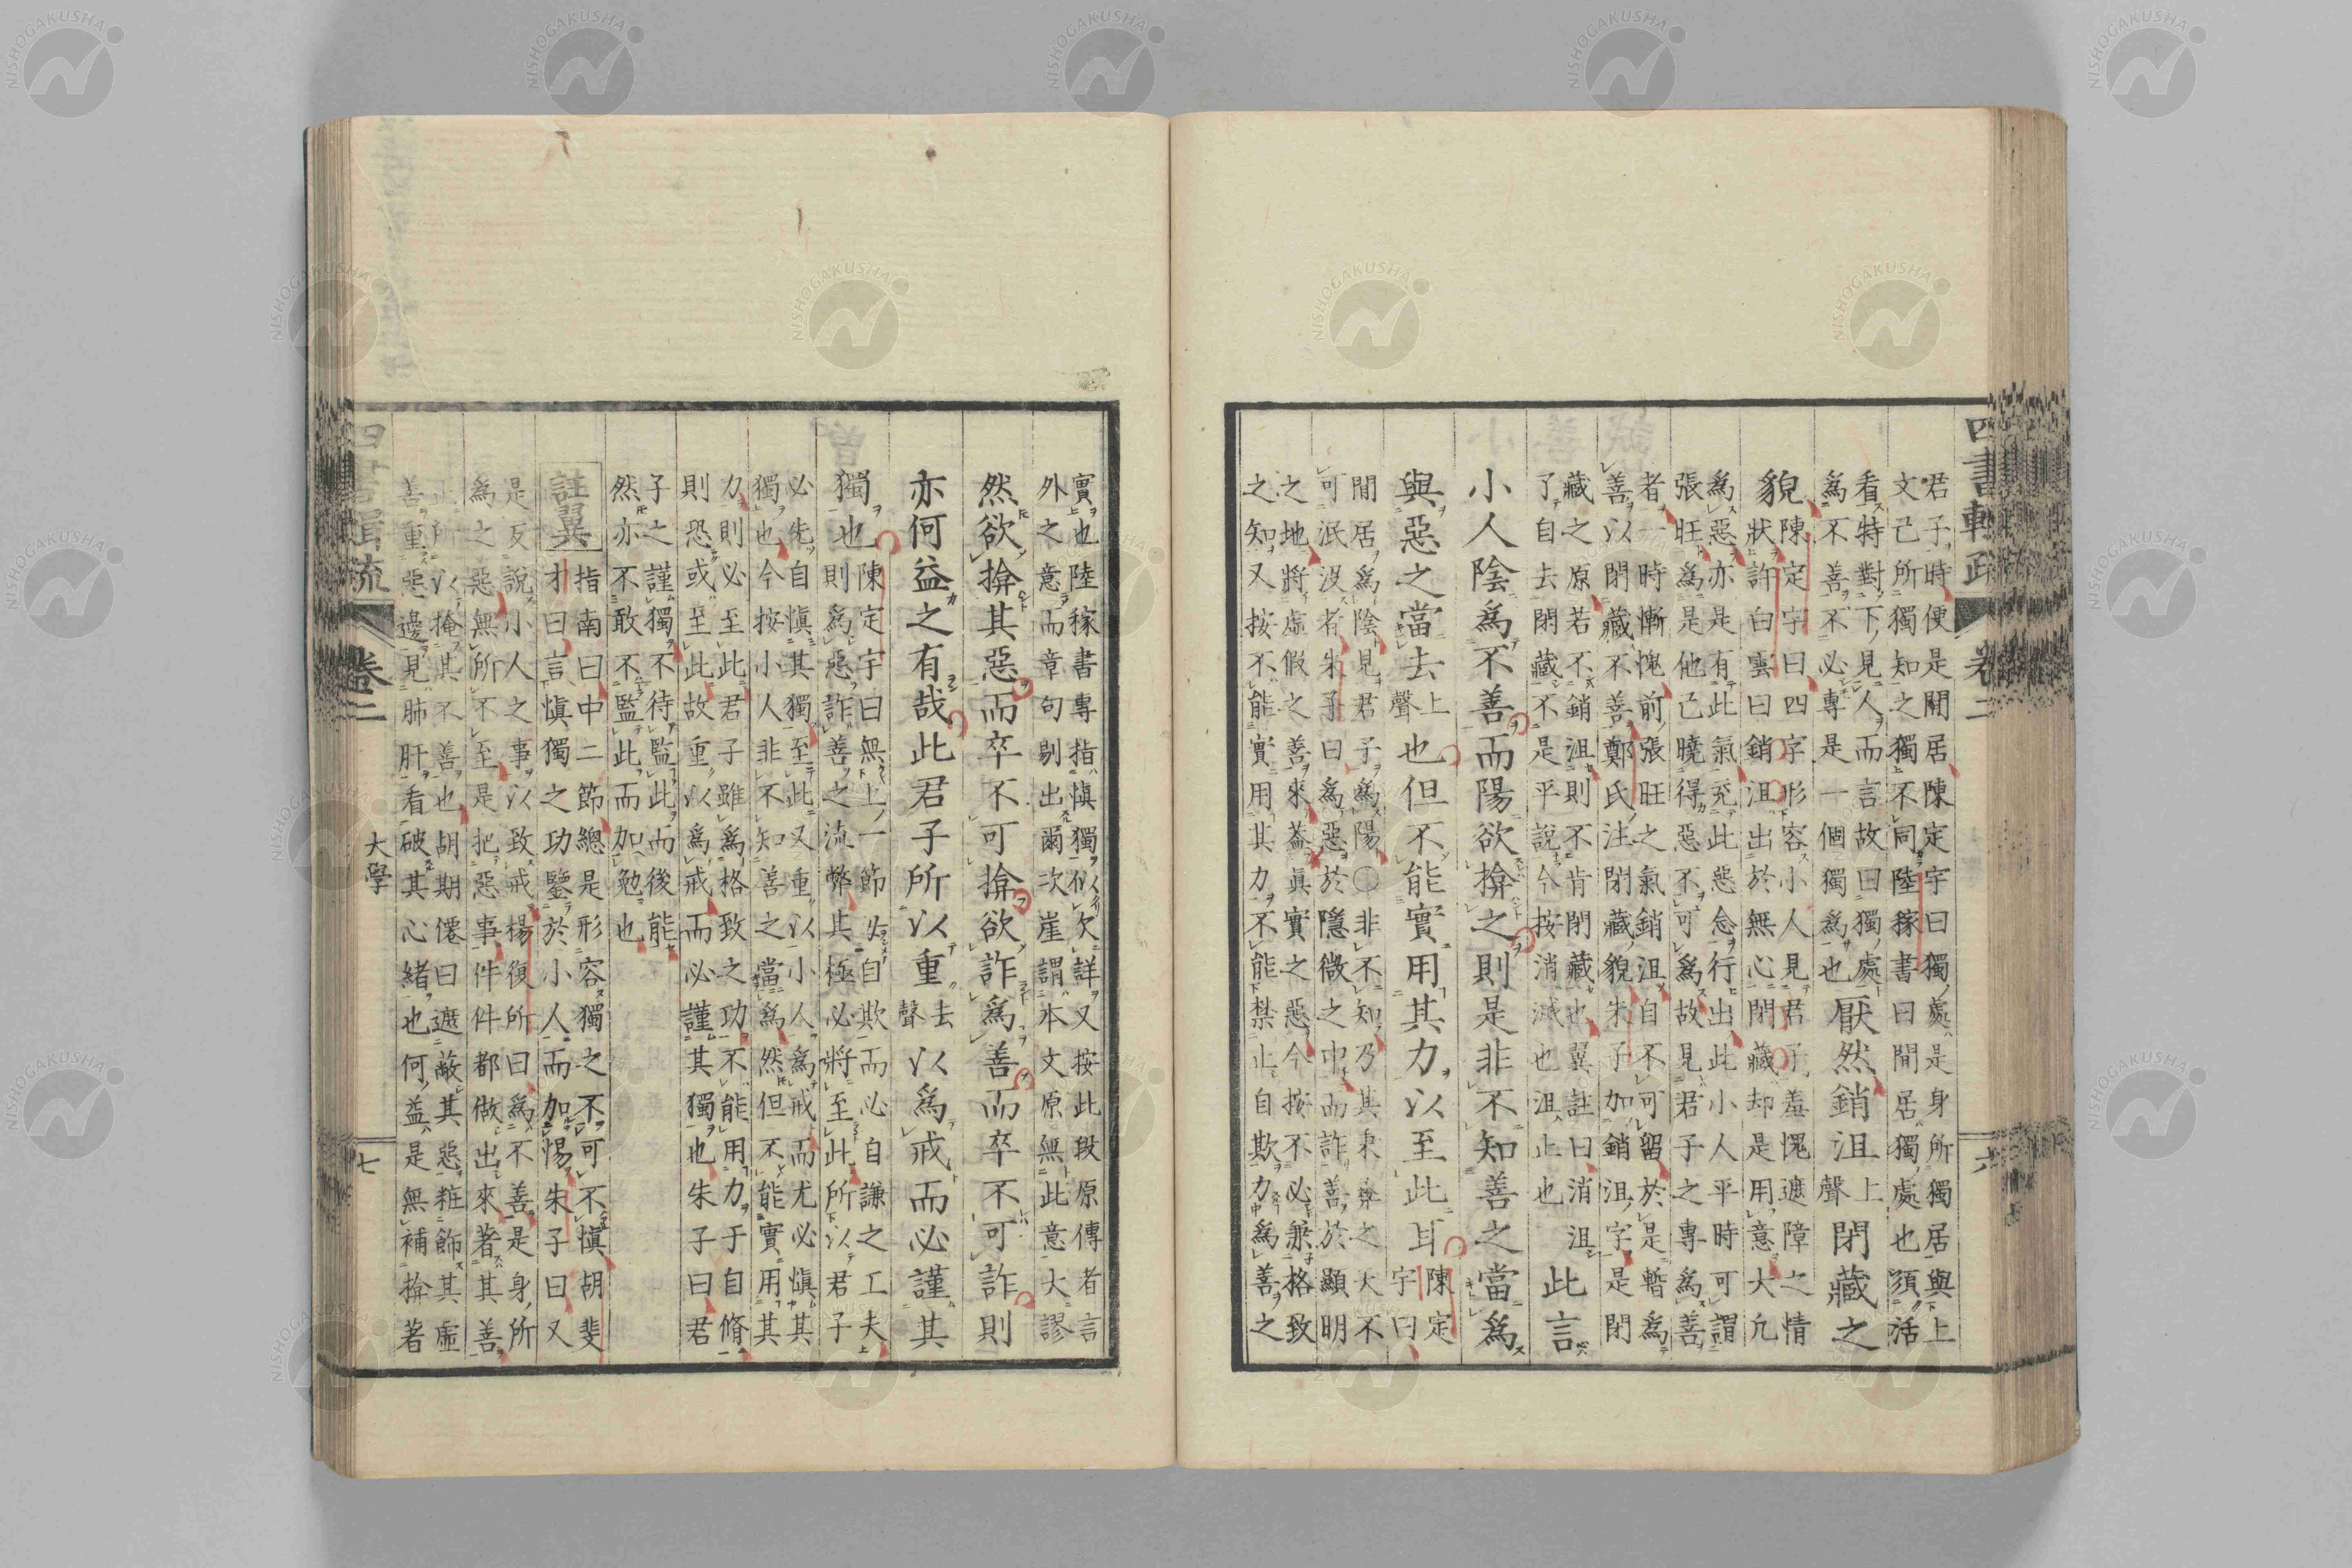 四書輯疏 卷二 六
君子時便是閒居陳定宇曰獨處是身所獨居與上
文己所獨知之獨不同陸稼書曰閒居獨處也須活
看特對下見人而言故曰獨處
為不善不必專是一個獨為也
厭然銷沮上聲閉藏之
貌
陳定宇曰四字形容小人見君子羞愧遮障之情
狀許白雲曰銷沮出於無心閉藏却是用意大凢
為惡亦是有此氣充此惡念行出此小人平時可謂
張旺為是他己曉得惡不可為故見君子之專為善
者一時慚愧前張旺之氣銷沮自不可留於是暫為
善以閉藏不善鄭氏注閉藏貌朱子加銷沮字是閉
藏之原若不銷沮則不肯閉藏也翼註曰消沮
了自去閉藏不是平說今按消滅也沮止也
此言
小人陰為不善而陽欲揜之則是非不知善之當為
與惡之當去上聲也但不能實用其力以至此耳
陳定
宇曰
閒居為陰見君子為陽○非不知乃其秉彝之天不
可泯没者朱子曰為惡於隱微之中而詐善於顯明
之地將虛假之善來蓋真實之惡今按不必兼格致
之知又按不能實用其力不能禁止自欺力為善之
實也陸稼書專指慎獨似欠詳又按此段原傳者言
外之意而章句剔出爾次崖謂本文原無此意大謬
然欲揜其惡而卒不可揜欲詐為善而卒不可詐則
亦何益之有哉此君子所以重去聲以為戒而必謹其
獨也
陳定宇曰無上一節必自欺而必自謙之工夫
則為惡詐善之流弊其極必將至此所以君子
必先自慎其獨至此又重以小人為戒而尤必慎其
獨也今按小人非不知善之當為然但不能實用其
力則必至此君子雖為格致之功不能用力于自脩
則恐或至此故重以為戒而必謹其獨也朱子曰君
子之謹獨不待監此而後能
然亦不敢不監此而加勉也
註翼
指南曰中二節總是形容獨之不可不慎胡斐
才曰言慎獨之功鑒於小人而加惕朱子曰又
是反說小人之事以致戒楊復所曰為不善是身所
為之惡無所不至是把惡事件件都做出來著其善
正所以掩其不善也胡期僊曰遮蔽其惡粧飾其虛
善重惡邊見肺肝看破其心緒也何益是無補揜著
四書輯疏 卷二 大學 七